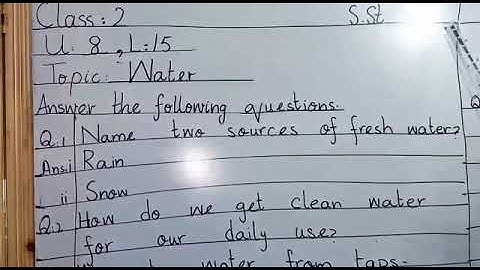 Class: 2 S.St
U: 8, L:15
Topic: Water
Answer the following questions.
Q.1 Name two sources of fresh water?
Ans:i Rain
ii Snow
Q.2 How do we get clean water
for our daily use?
water from taps.